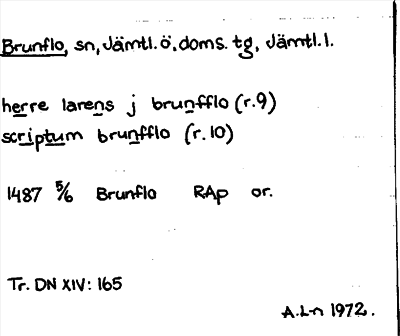 Brunflo, sn, Jämtl. ö. doms. tg, Jämtl. l.
herre larens j brunfflo (r. 9)
scriptum brunfflo (r. 10)
1487 5/6 Brunflo RAp or.
Tr. DN XIV: 165
A.L-n 1972.